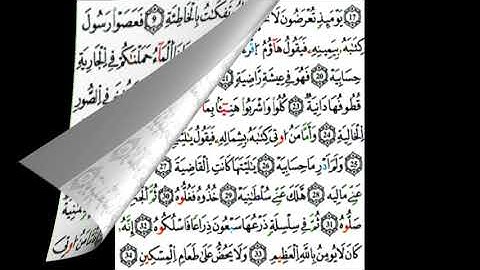 17 يَوْمَئِذٍ تُعْرَضُونَ لَا تَفِكَتُ بِالْخَاطِئَةِ 9 فَعَصَوْا رَسُولَ
كِتَٰبَهُۥ بِيَمِينِهِۦ فَيَقُولُ هَاؤُمُ الْمَاءُ حَمَلْنَٰكُمْ فِي الْجَارِيَةِ
حِسَابِيَهْ 20 فَهُوَ فِي عِيشَةٍ رَاضِيَةٍ 21 فِي الصُّورِ
قُطُوفُهَا دَانِيَةٌ 23 كُلُوا وَاشْرَبُوا هَنِيئًا بِمَا
الْخَالِيَةِ 24 وَأَمَّا مَنْ أُوتِيَ كِتَٰبَهُۥ بِشِمَالِهِۦ فَيَقُولُ
25 وَلَمْ أَدْرِ مَا حِسَابِيَهْ يَٰلَيْتَهَا كَانَتِ الْقَاضِيَةَ 27
عَنِّي مَالِيَهْ 28 هَلَكَ عَنِّي سُلْطَٰنِيَهْ 29 خُذُوهُ فَغُلُّوهُ 30
صَلُّوهُ 31 ثُمَّ فِي سِلْسِلَةٍ ذَرْعُهَا سَبْعُونَ ذِرَاعًا فَاسْلُكُوهُ 32 إِنَّهُۥ
كَانَ لَا يُؤْمِنُ بِاللَّهِ الْعَظِيمِ 33 وَلَا يَحُضُّ عَلَىٰ طَعَامِ الْمِسْكِينِ 34